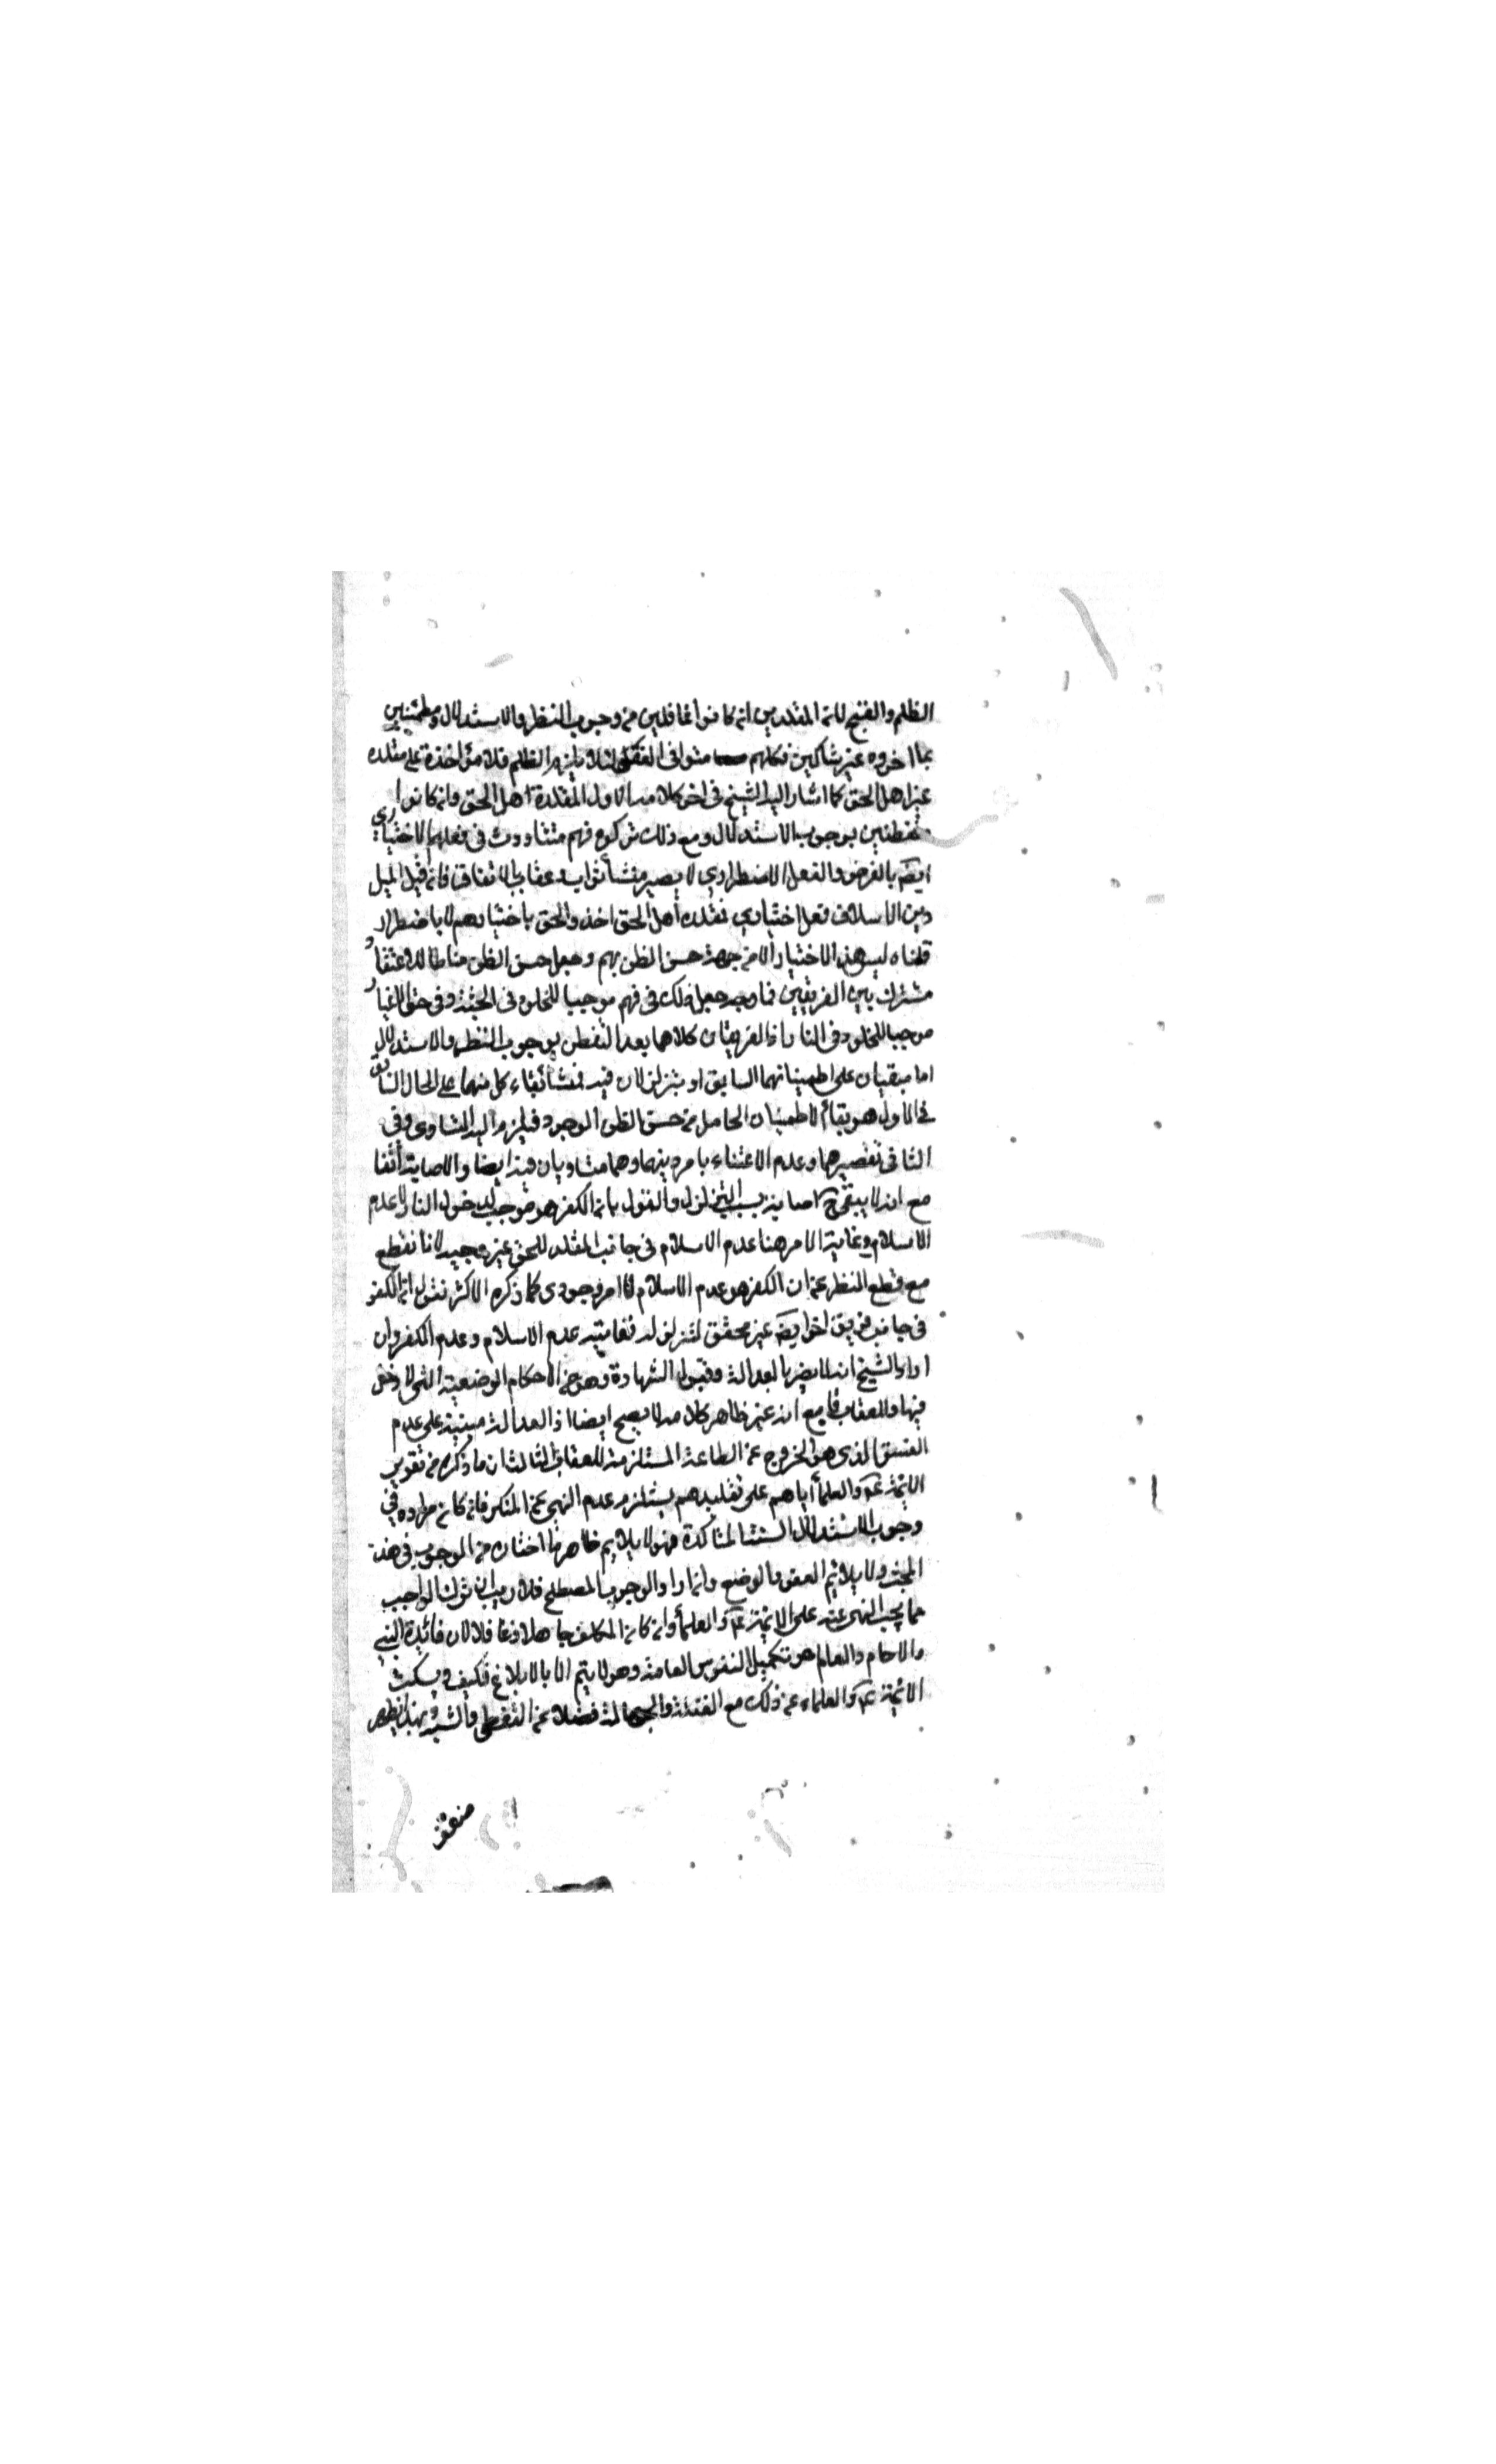 الظلم والقبح لان المقلدين ان كانوا غافلين من وجوب النظر والاستدلال ومطمئنين
بما اخذوه غير شاكين فكلهم متوافى العقل لئلا يلزم الظلم فلا مؤاخذة على مقلده
غير اهل الحق كما اشار اليه الشيخ فى اخر كلامه الاول المقلدة اهل الحق وان كانوا
متفطنين بوجوب الاستدلال ومع ذلك تركوه فهم متساوون فى فعلهم الاختياري
ايضا بالفرض والفعل الاضطراري لا يصير منشأ ثواب وعقاب بالاتفاق فان قيل الميل
دين الاسلاف فعل اختياري فقلده اهل الحق اخذوا الحق باختيارهم لا باضطرار
قلنا ليس هذا الاختيار الا من جهة حسن الظن بهم وجعل حسن الظن مناطا للاعتقاد
مشترك بين الفريقين فما وجه جعل ذلك فى فهم موجبا للخلود فى الجنة وفى حق الاغيار
موجبا للخلود فى النار اذ الفريقان كلاهما بعد التفطن بوجوب النظر والاستدلال
اما مبقيان على اطمينانهما السابق او متزلزلان فيه فمنشأ بقاء كل منهما على الحال السابق
فى الاول هو بقاء الاطمينان الحاصل من حسن الظن الموجود فيلزم اليه التساوى وفى
الثانى تقصيرهما وعدم الاعتناء بامر دينهما وهما متساويان فيه ايضا والاصابة اتفاقا
مع انه لا يبقى ح اصابة بسبب التزلزل والقول بان الكفر هو موجب لدخول النار لا عدم
الاسلام وغاية الامر هنا عدم الاسلام فى جانب المقلد للحق غير وجيه لانا نقطع
مع قطع النظر عن ان الكفر هو عدم الاسلام لا امر وجودى كما ذكره الاكثر نقول ان الكفر
فى جانب فريق اخر ايضا غير محقق لتزلزله فغايته عدم الاسلام وعدم الكفر وان
اراد الشيخ انه لا يضر بالعدالة وقبول الشهادة وهو من الاحكام الوضعية التى لا دخل
فيها للعقاب فمع انه غير ظاهر كلامه لا يصح ايضا اذ العدالة مبنية على عدم
الفسق الذى هو الخروج عن الطاعة المستلزمة للعقاب الثالث ان ما ذكره من تقرير
الائمة عم والعلماء اياهم على تقليدهم يستلزم عدم النهى عن المنكر فان كان مراده فى
وجوب الاستدلال السنة المتاكدة فهو لا يلايم ظاهر ما اختاره من الوجوب فى هذه
المبحث ولا يلائم العقل والوضع وان اراد الوجوب المصطلح فلا ريب ان ترك الواجب
مما يجب النهى عنه على الائمة عم والعلماء وان كان المكلف جاهلا وغافلا لان فائدة النبي
والامام والعالم هو تكميل النفوس العامة وهو لا يتم الا بالابلاغ فكيف يسكت
الائمة عم والعلماء عن ذلك مع الغفلة والجهالة فضلا عن التفطن والتنبيه وبهذا يظهر